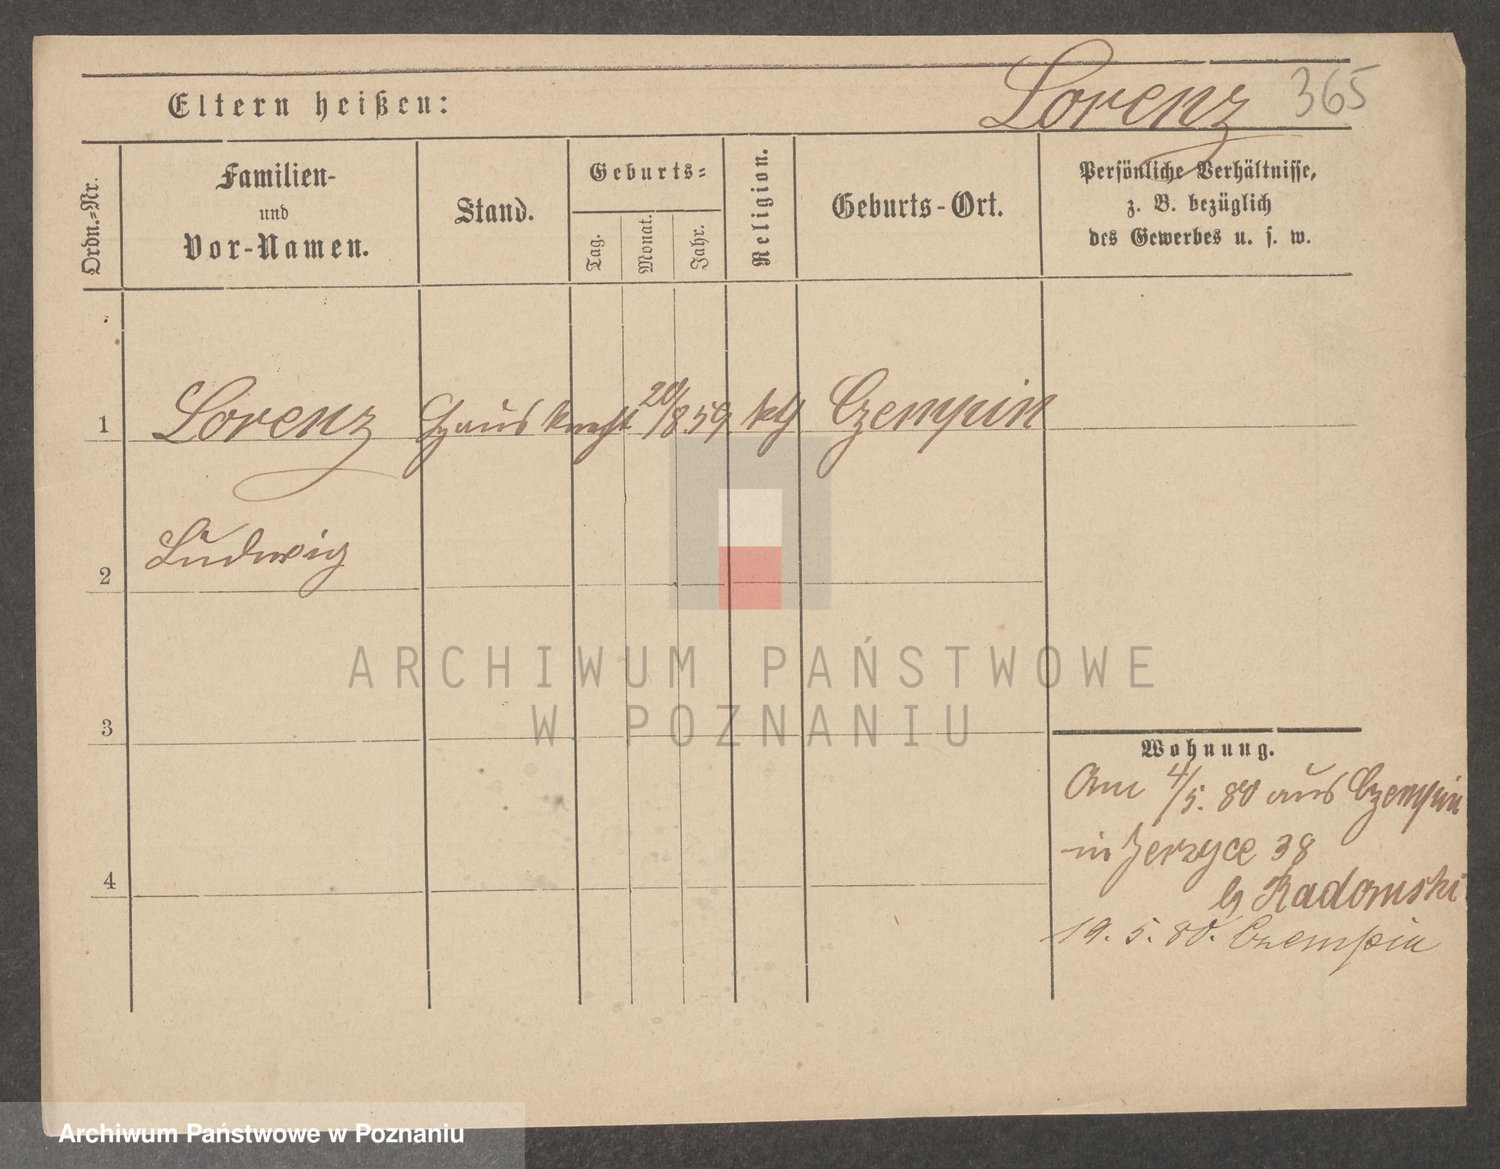 Lorenz 365
Eltern heißen:
Ordn.-Nr.
Familien-
und
Vor-Namen.
Stand.
Geburts-
Tag.
Monat.
Jahr.
Religion.
Geburts-Ort.
Persönliche Verhältnisse,
z. B. bezüglich
des Gewerbes u. s. w.
1 Lorenz Hausknecht 20/8 59 kth Czempin
2 Ludwig
3
4
Wohnung.
Am 4/5. 80 aus Czempin
in Jerzyce 38
b Radomski
19. 5. 80. Czempin
ARCHIWUM PAŃSTWOWE
W POZNANIU
Archiwum Państwowe w Poznaniu